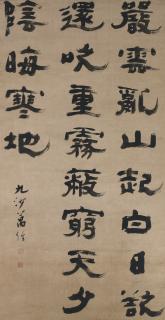 嚴雲亂山起白日欲
還次重霧蔽窮天夕
陰晦寒地
九沙萬經